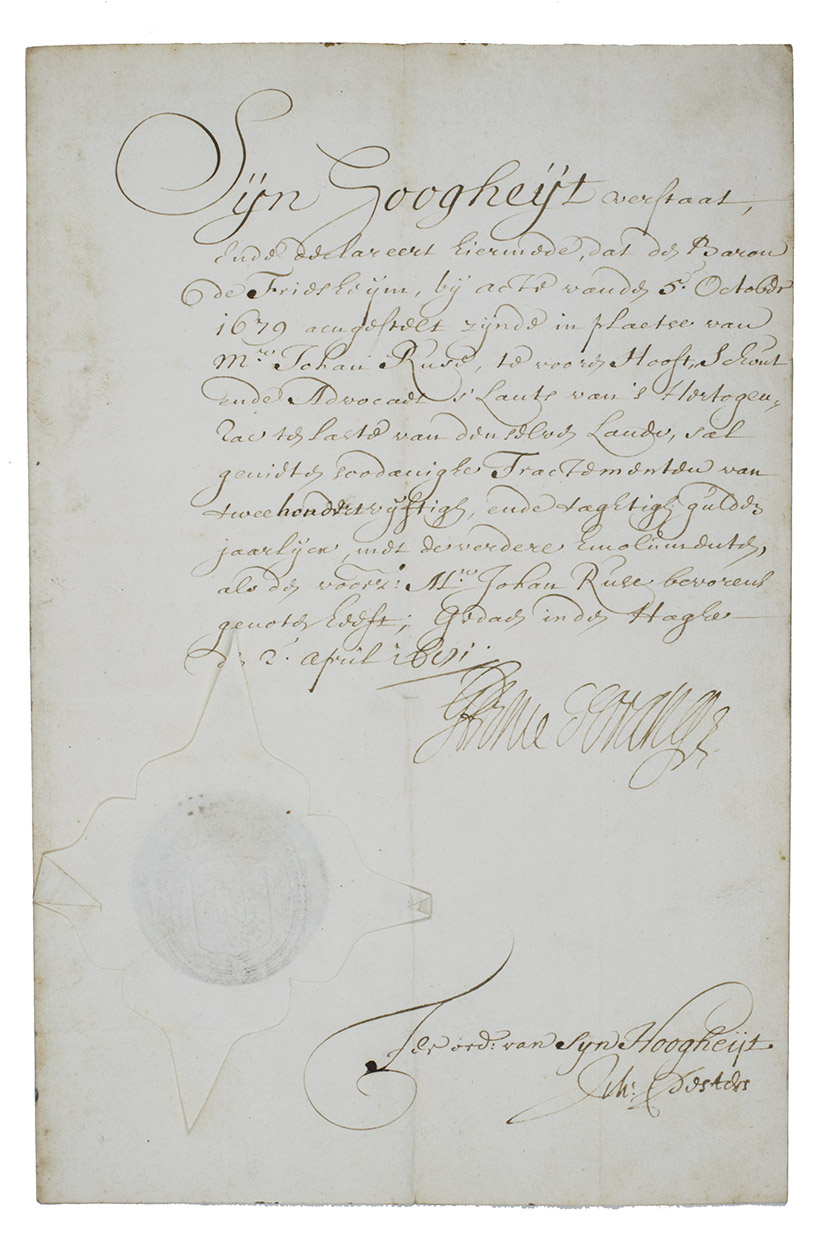 Sijn Hoogheijt verstaat,
ende declareert hiermede, dat de Baron
de Friesheijm, bij acte vande 5.e October
1679 aengestelt zijnde in plaetse van
M.ro Johan Ruse, te voore Hooft, Schout
ende Advocaet 's Lants van 's Hertogen-
Rae te laste van denselve Lande, sal
geniete soodanighe Tractementen van
tweehondertvijftigh, ende taghtigh gulde
jaarlijcx, met de verdere Emolumente,
als de voorz: M.ro Johan Ruse bevorens
genote heeft; Gedae inde Haghe
de 2.e april
G Prince d'Orange
Ter ord: van Sijn Hoogheijt